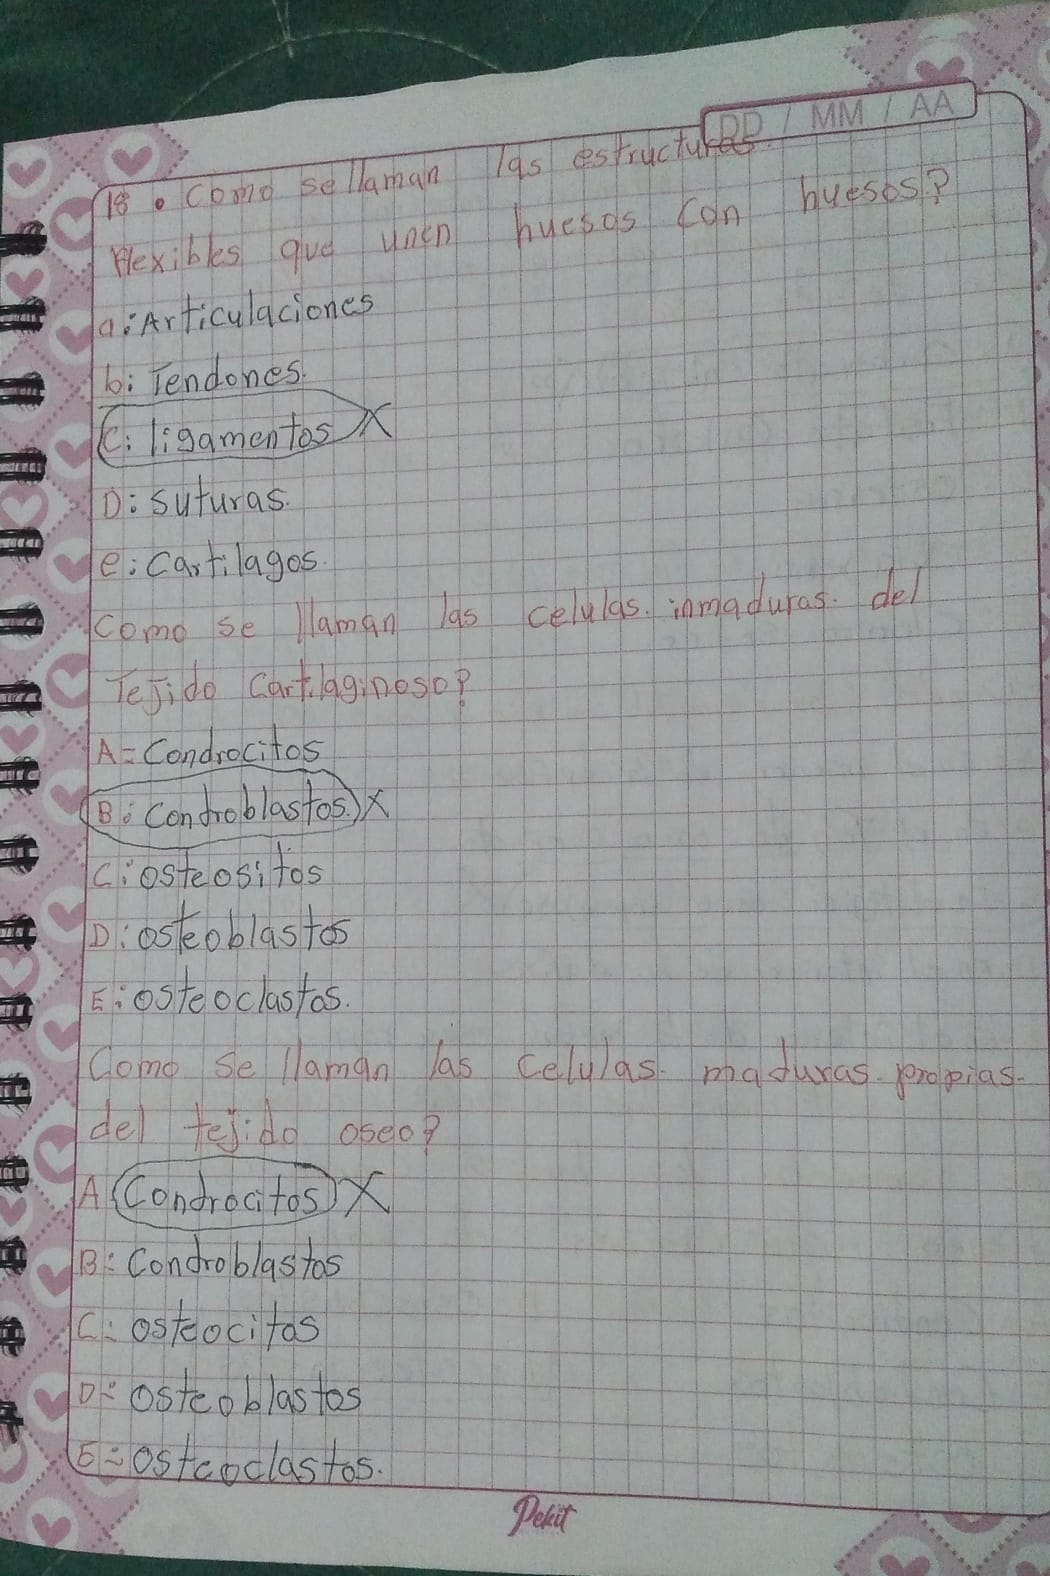 DD / MM / AA
18. Como se llaman las estructuras
flexibles que unen huesos con huesos?
a: Articulaciones
b: Tendones.
C: ligamentos X
D: suturas.
e: Cartilagos.
Como se llaman las celulas. inmaduras. del
Tejido Cartilaginoso?
A= Condrocitos
B: Condroblastos. X
C: osteositos
D: osteoblastos
E: osteoclastos.
Como se llaman las celulas. maduras. propias.
del tejido oseo?
A Condrocitos X
B: Condroblastos
C: osteocitos
D: osteoblastos
E= osteoclastos.
Pekit